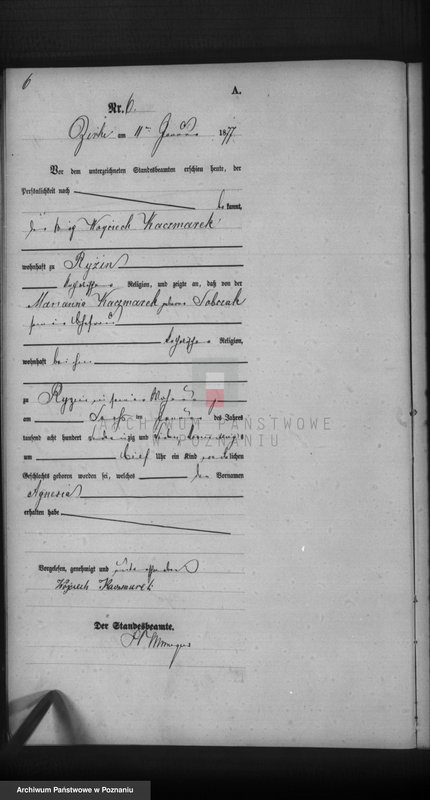 6
A.
Nr. 6.
Zirke am 11ten Januar 1877
Vor dem unterzeichneten Standesbeamten erschien heute, der
Persönlichkeit nach
bekannt,
Wojciech Kaczmarek
wohnhaft zu Ryzin
katholischer Religion, und zeigte an, daß von der
Marianna Kaczmarek geborene Sobczak
seiner Ehefrau
katholischer Religion,
wohnhaft bei ihm
zu Ryzin in seiner Wohnung
am Januar des Jahres
tausend acht hundert siebenzig und
um Uhr ein Kind weiblichen
Geschlechts geboren worden sei, welches den Vornamen
Agnesia
erhalten habe
ARCHIWUM PAŃSTWOWE
W POZNANIU
Vorgelesen, genehmigt und unterschrieben
Wojciech Kaczmarek
Der Standesbeamte.
Archiwum Państwowe w Poznaniu